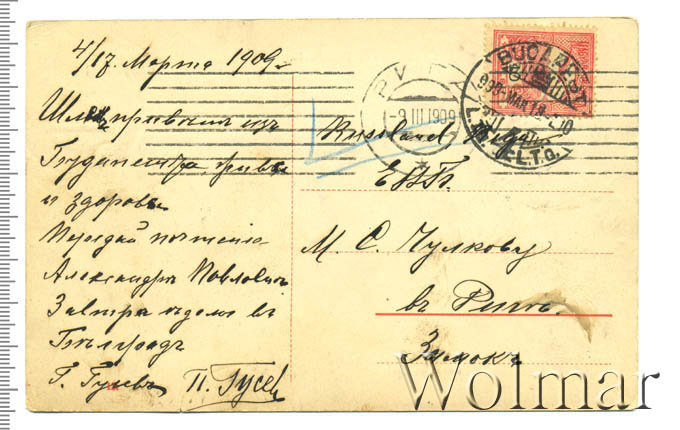 4/17. Марта 1909
Шлемъ привѣтъ изъ
Будапешта, живы
и здоровы
Передай почтеніе
Александръ Павловичъ
Завтра ѣдемъ въ
Бѣлградъ
Г. Гусевъ П. Гусев
BUDAPEST
909 MAR 18
-9 III 1909
Russland
ЕВБ.
М. С. Чулкову
въ Ригѣ.
Замокъ
Wolmar